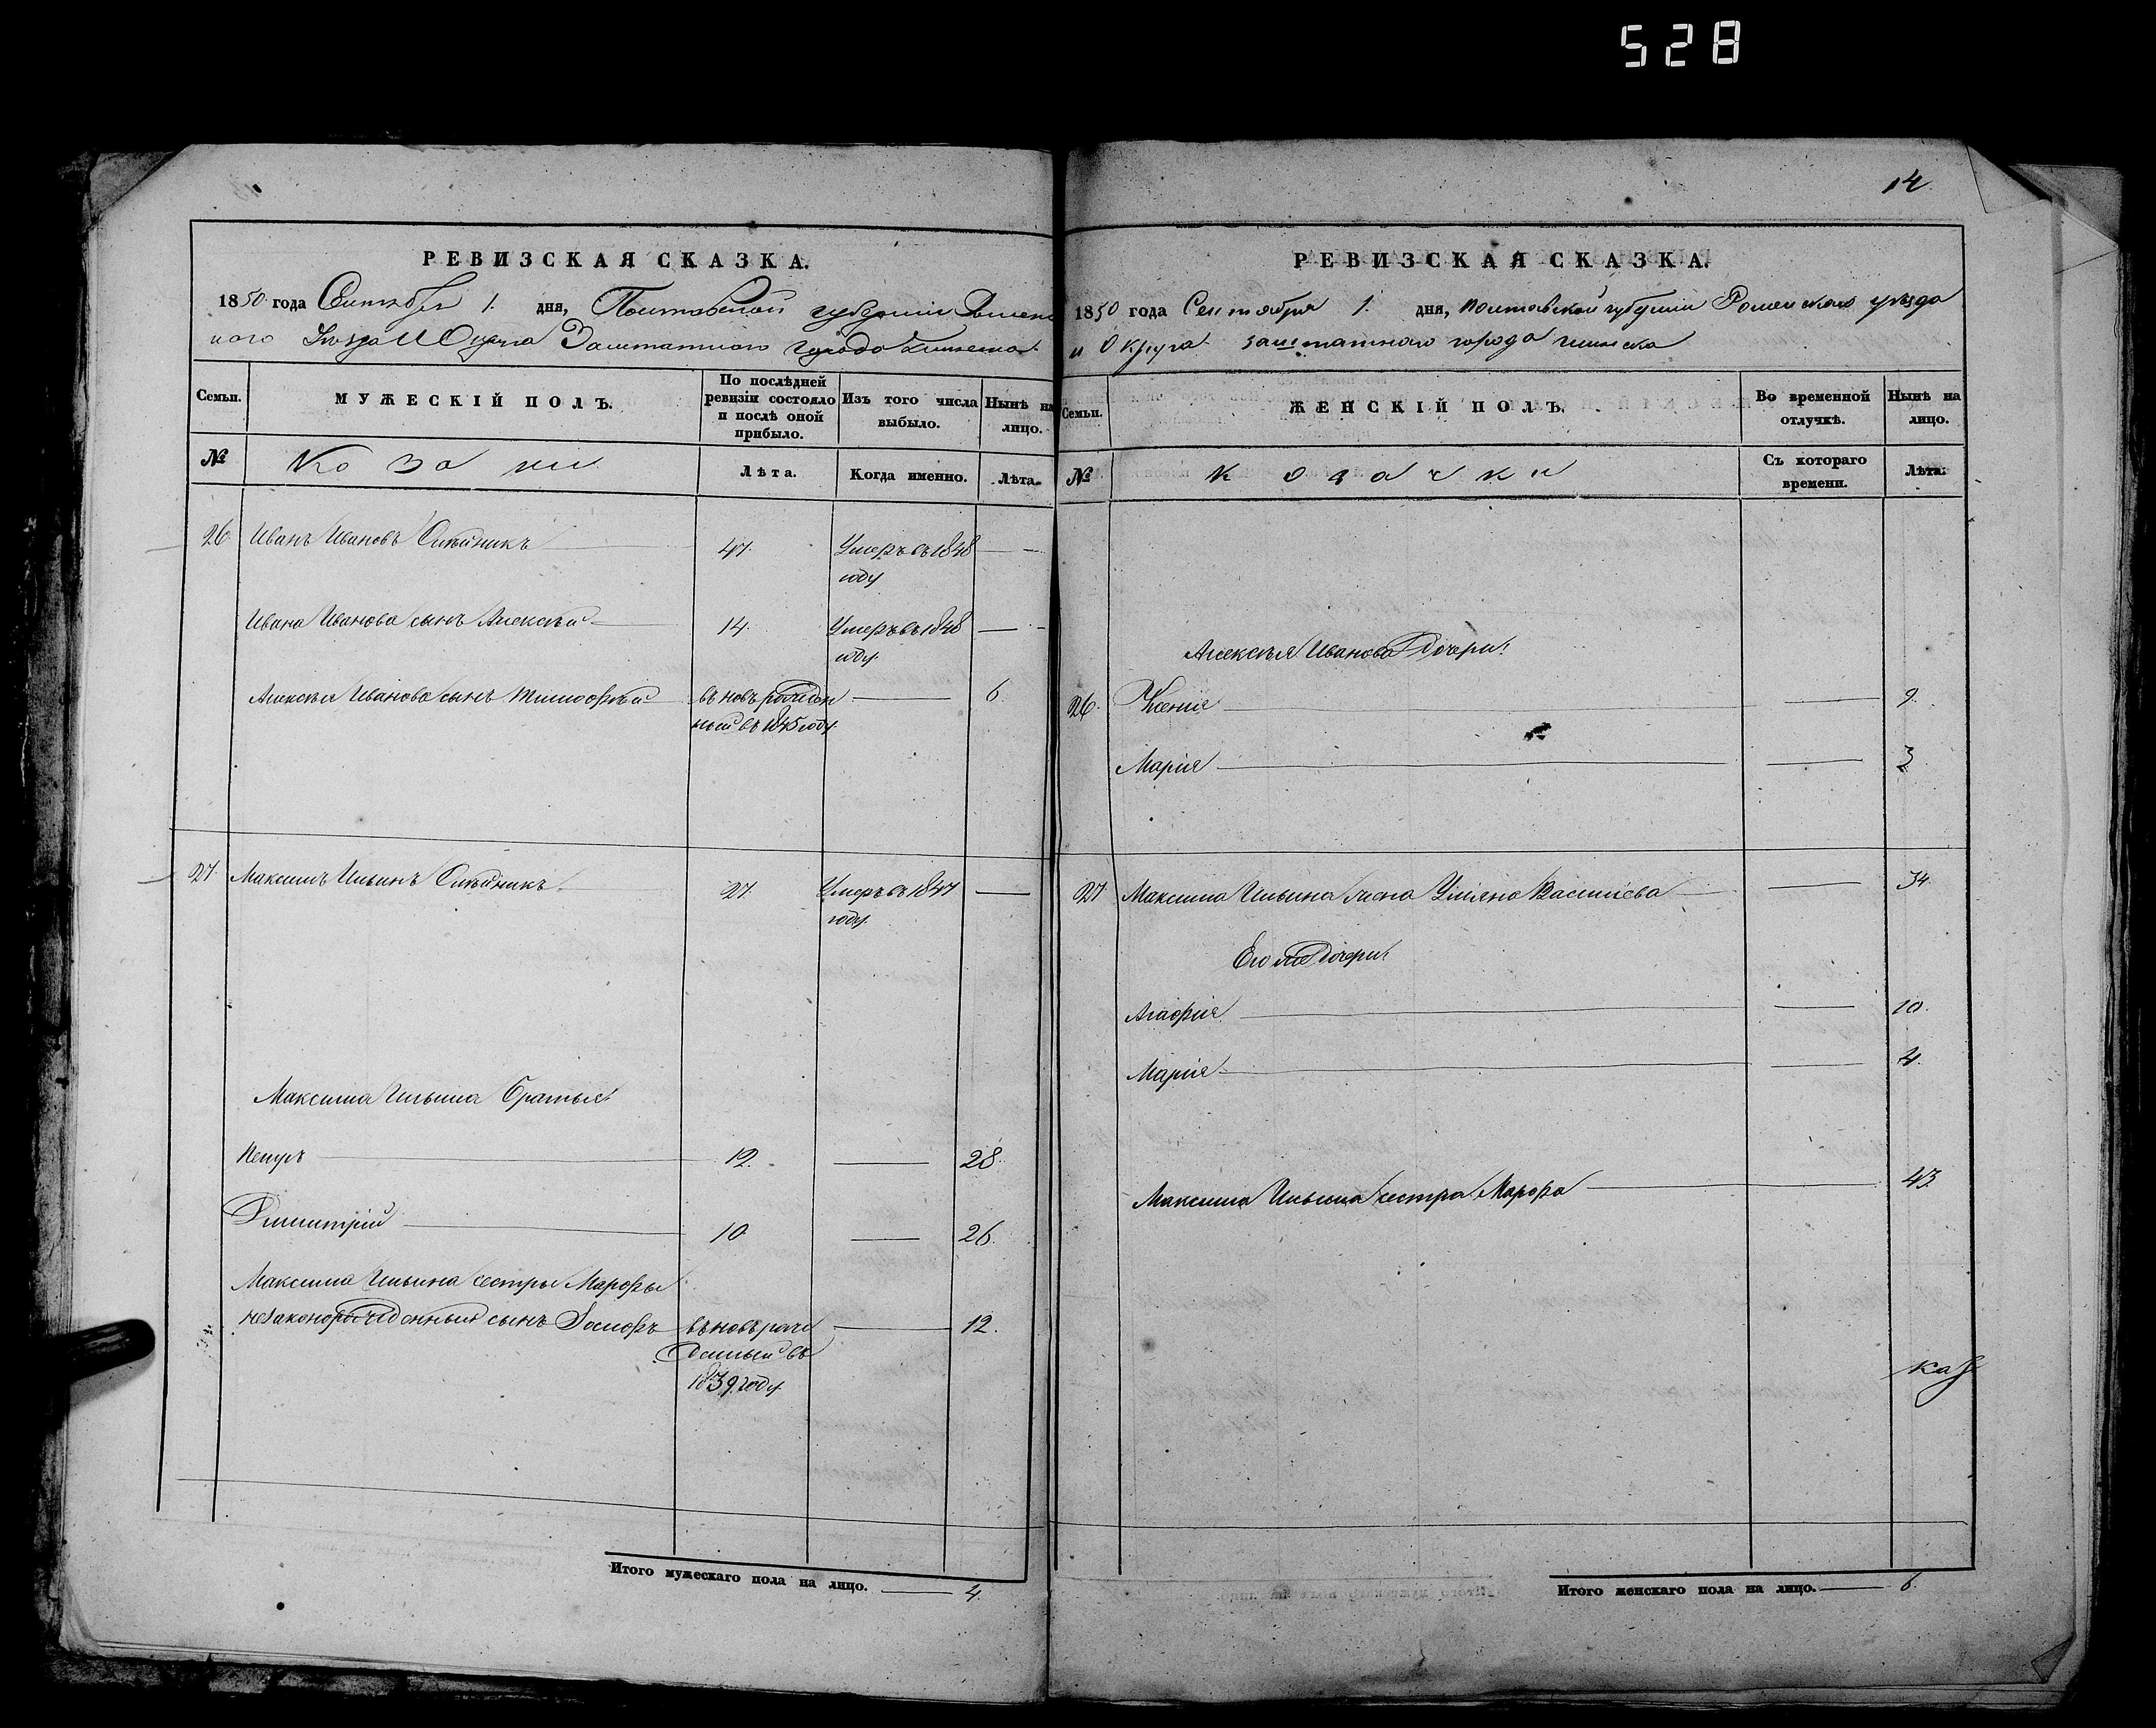 528
РЕВИЗСКАЯ СКАЗКА.
1850 года Сентября 1. дня, Полтавской губернии Ромен
ского Уезда И Округа Заштатного города Глинска
Семьи.
МУЖЕСКІЙ ПОЛЪ.
По послѣдней ревизіи состояло и послѣ оной прибыло.
Изъ того числа выбыло.
Нынѣ на лицо.
№
Козаки
Лѣта.
Когда именно.
Лѣта.
26 Иванъ Ивановъ Олѣйникъ 47. Умеръ въ 1848
году
Ивана Иванова сынъ Алексѣй 14. Умеръ въ 1848
году.
Алексѣя Иванова сынъ Тимофѣй въ новъ рожден 6
ный въ 1845 году.
27. Максимъ Ильинъ Олѣйникъ 27. Умеръ въ 1847
году.
Максима Ильина братья:
Петръ 12. 28.
Димитрій 10. 26.
Максима Ильина сестры Марфы
незаконорожденный сынъ Іосифъ въ новъ рож 12.
денный въ
1839 году.
Итого мужескаго пола на лицо. 4.
14
РЕВИЗСКАЯ СКАЗКА.
1850 года Сентября 1. дня, Полтавской губернии Роменского уезда
и Округа заштатного города Глинска
Семьи.
ЖЕНСКІЙ ПОЛЪ.
Во временной отлучкѣ.
Нынѣ на лицо.
№
Козачки
Съ котораго времени.
Лѣта.
Алексѣя Иванова дочери:
26. Ксенія 9.
Марія 3
27 Максима Ильина жена Уліяна Васильева 34.
Его же дочери:
Агафія 10.
Марія 4.
Максима Ильина сестра Марфа 43.
каз
Итого женскаго пола на лицо. 6.